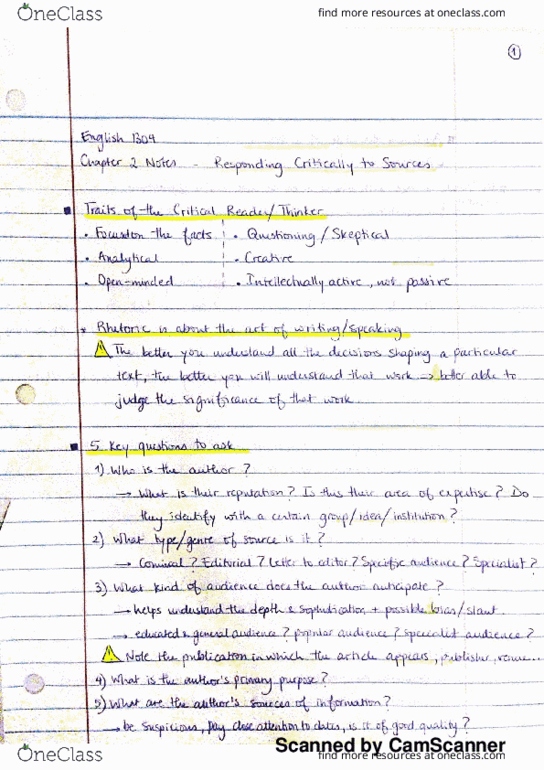 OneClass
find more resources at oneclass.com
1
English 1304
Chapter 2 Notes - Responding Critically to Sources
Traits of the Critical Reader/Thinker
• Focus on the facts • Questioning / Skeptical
• Analytical • Creative
• Open-minded • Intellectually active, not passive
* Rhetoric is about the art of writing/speaking
The better you understand all the decisions shaping a particular
text, the better you will understand that work → better able to
judge the significance of that work.
5 Key questions to ask
1) Who is the author?
→ What is their reputation? Is this their area of expertise? Do
they identify with a certain group/idea/institution?
2) What type/genre of source is it?
→ Comical? Editorial? Letter to editor? Specific audience? Specialist?
3) What kind of audience does the author anticipate?
→ helps understand the depth & sophistication + possible bias/slant.
→ educated & general audience? popular audience? specialist audience?
Note the publication in which the article appears, publisher, venue...
4) What is the author's primary purpose?
5) What are the author's sources of information?
→ be suspicious, pay close attention to dates, is it of good quality?
Scanned by CamScanner
OneClass
find more resources at oneclass.com